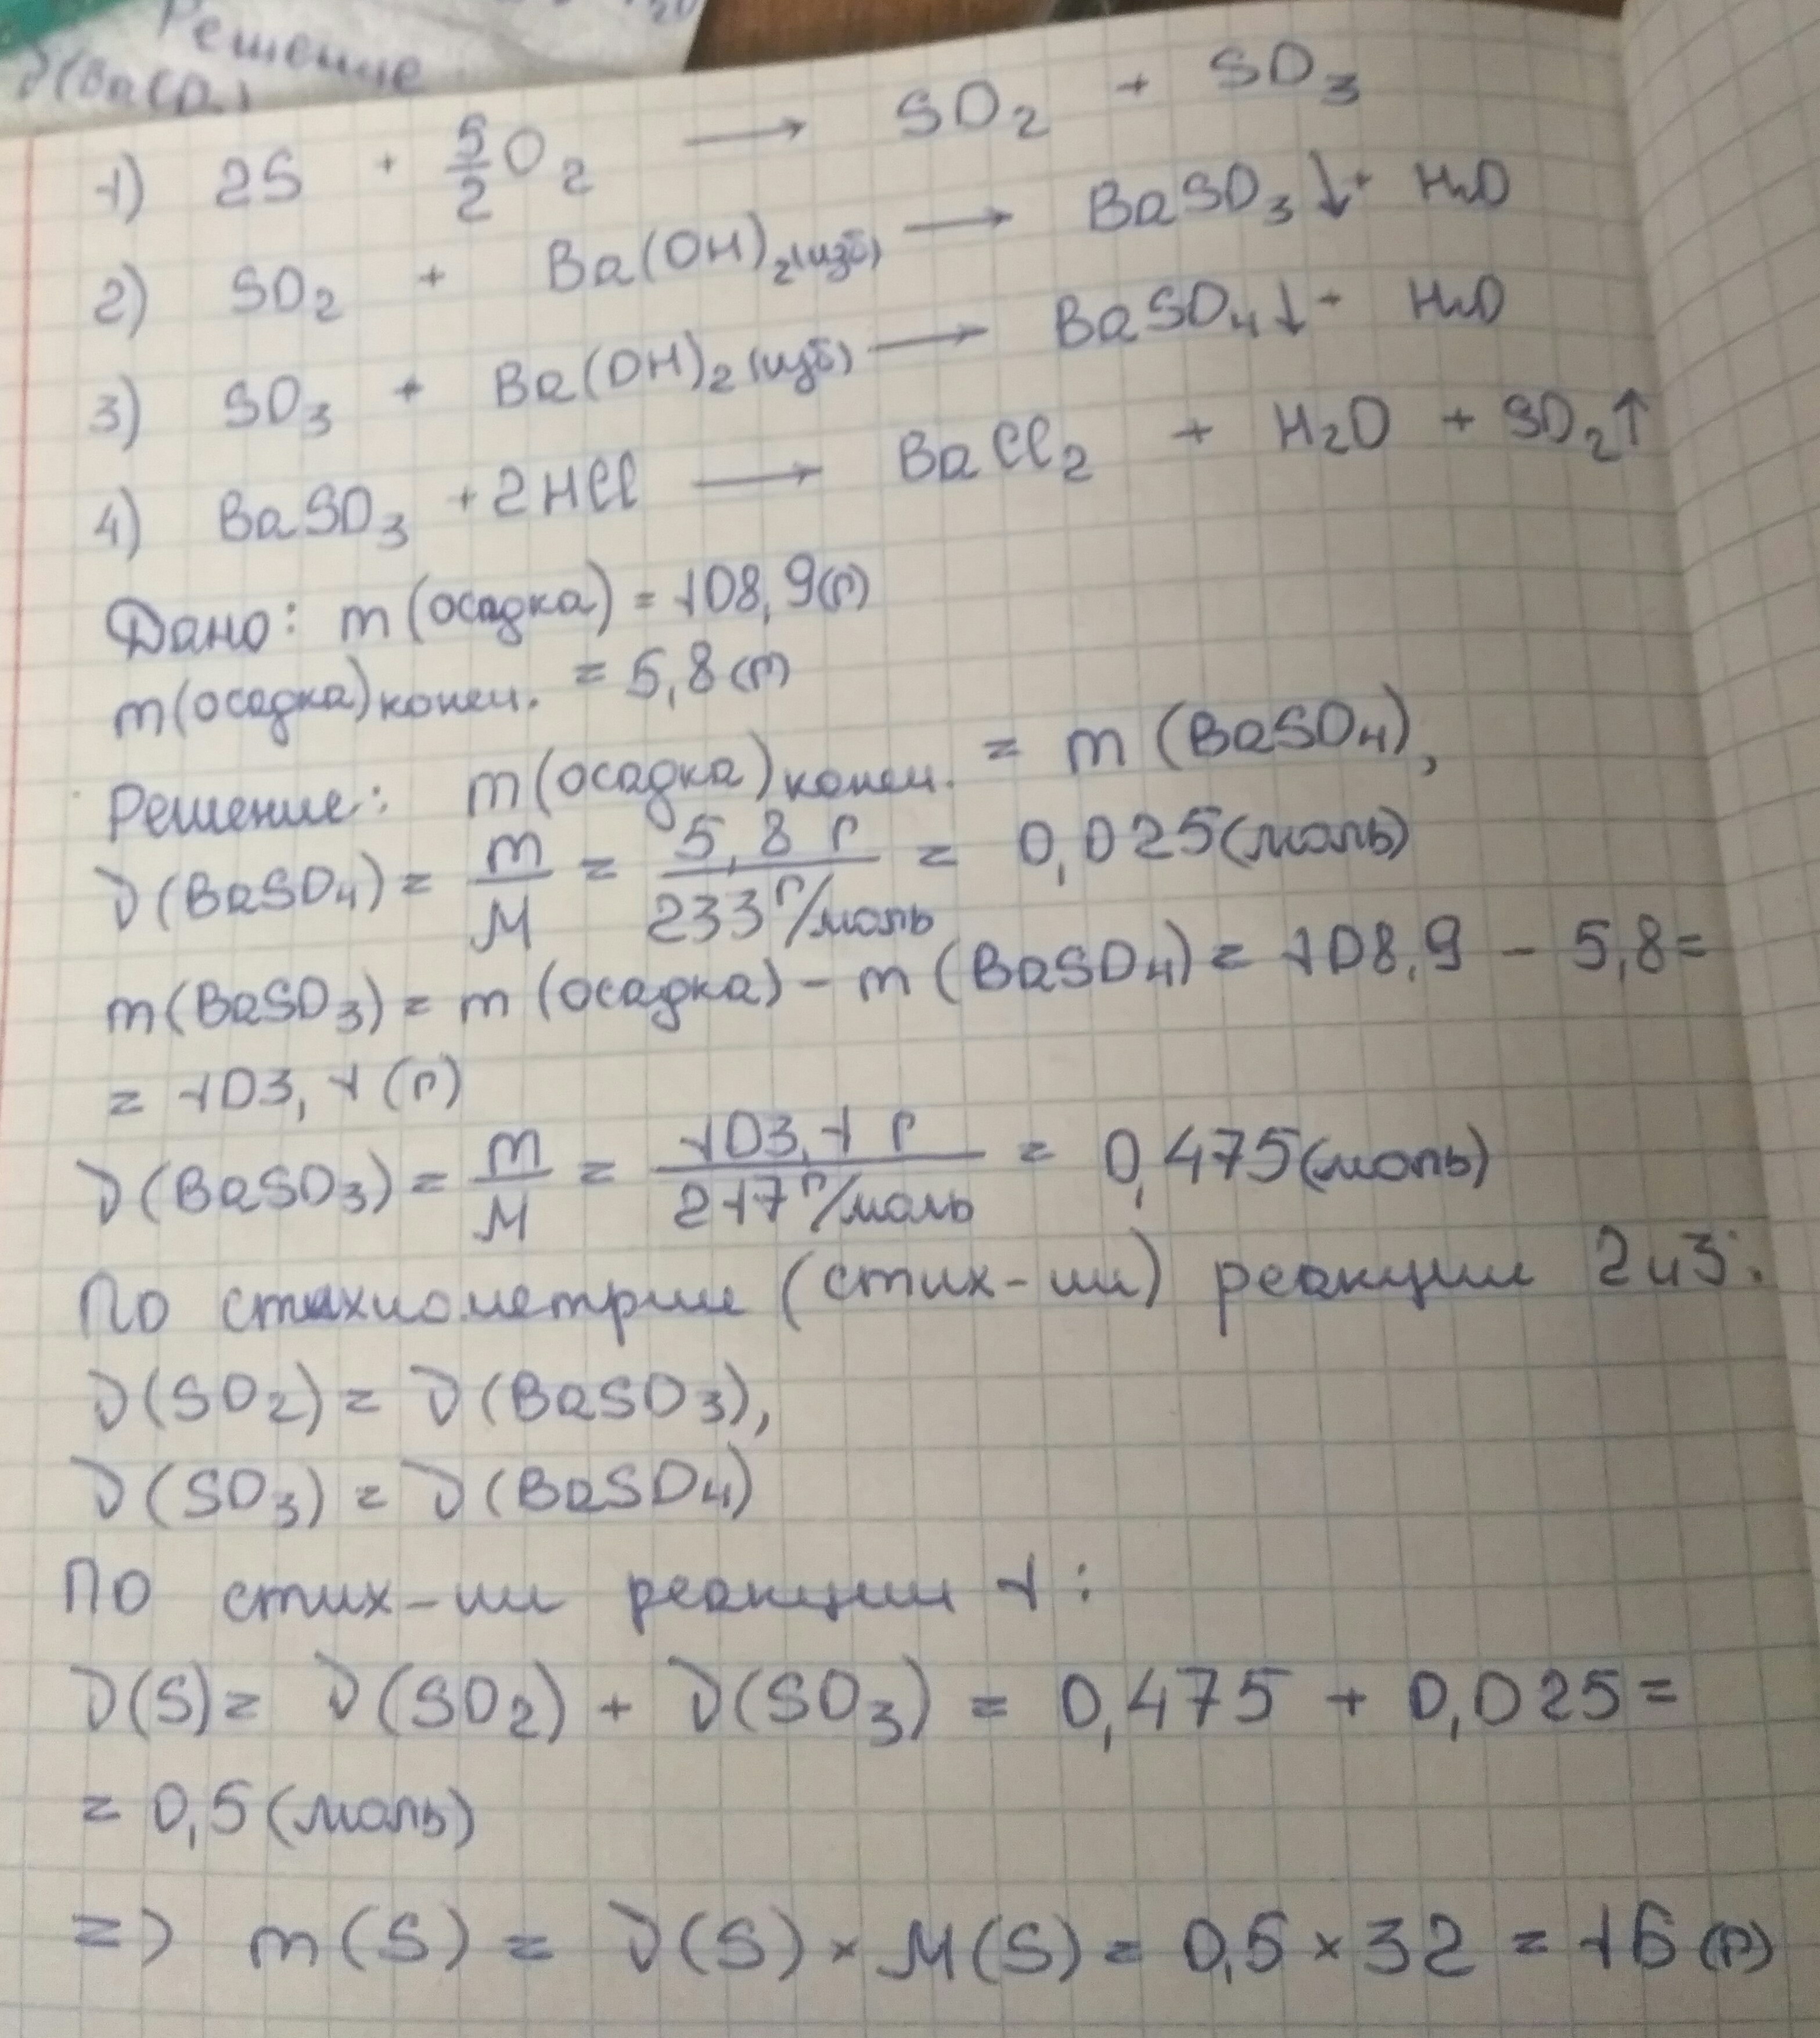 Решение
ν(BaCl₂)
1) 2S + 5/2 O₂ → SO₂ + SO₃
2) SO₂ + Ba(OH)₂(изб) → BaSO₃↓ + H₂O
3) SO₃ + Ba(OH)₂(изб) → BaSO₄↓ + H₂O
4) BaSO₃ + 2HCl → BaCl₂ + H₂O + SO₂↑
Дано: m(осадка) = 108,9(г)
m(осадка)конеч. = 5,8(г)
Решение: m(осадка)конеч. = m(BaSO₄),
ν(BaSO₄) = m/M = 5,8 г/233 г/моль = 0,025(моль)
m(BaSO₃) = m(осадка) - m(BaSO₄) = 108,9 - 5,8 =
= 103,1(г)
ν(BaSO₃) = m/M = 103,1 г/217 г/моль = 0,475(моль)
По стихиометрии (стих-ии) реакции 2и3:
ν(SO₂) = ν(BaSO₃),
ν(SO₃) = ν(BaSO₄)
По стих-ии реакции 1:
ν(S) = ν(SO₂) + ν(SO₃) = 0,475 + 0,025 =
= 0,5(моль)
=> m(S) = ν(S) × M(S) = 0,5 × 32 = 16(г)